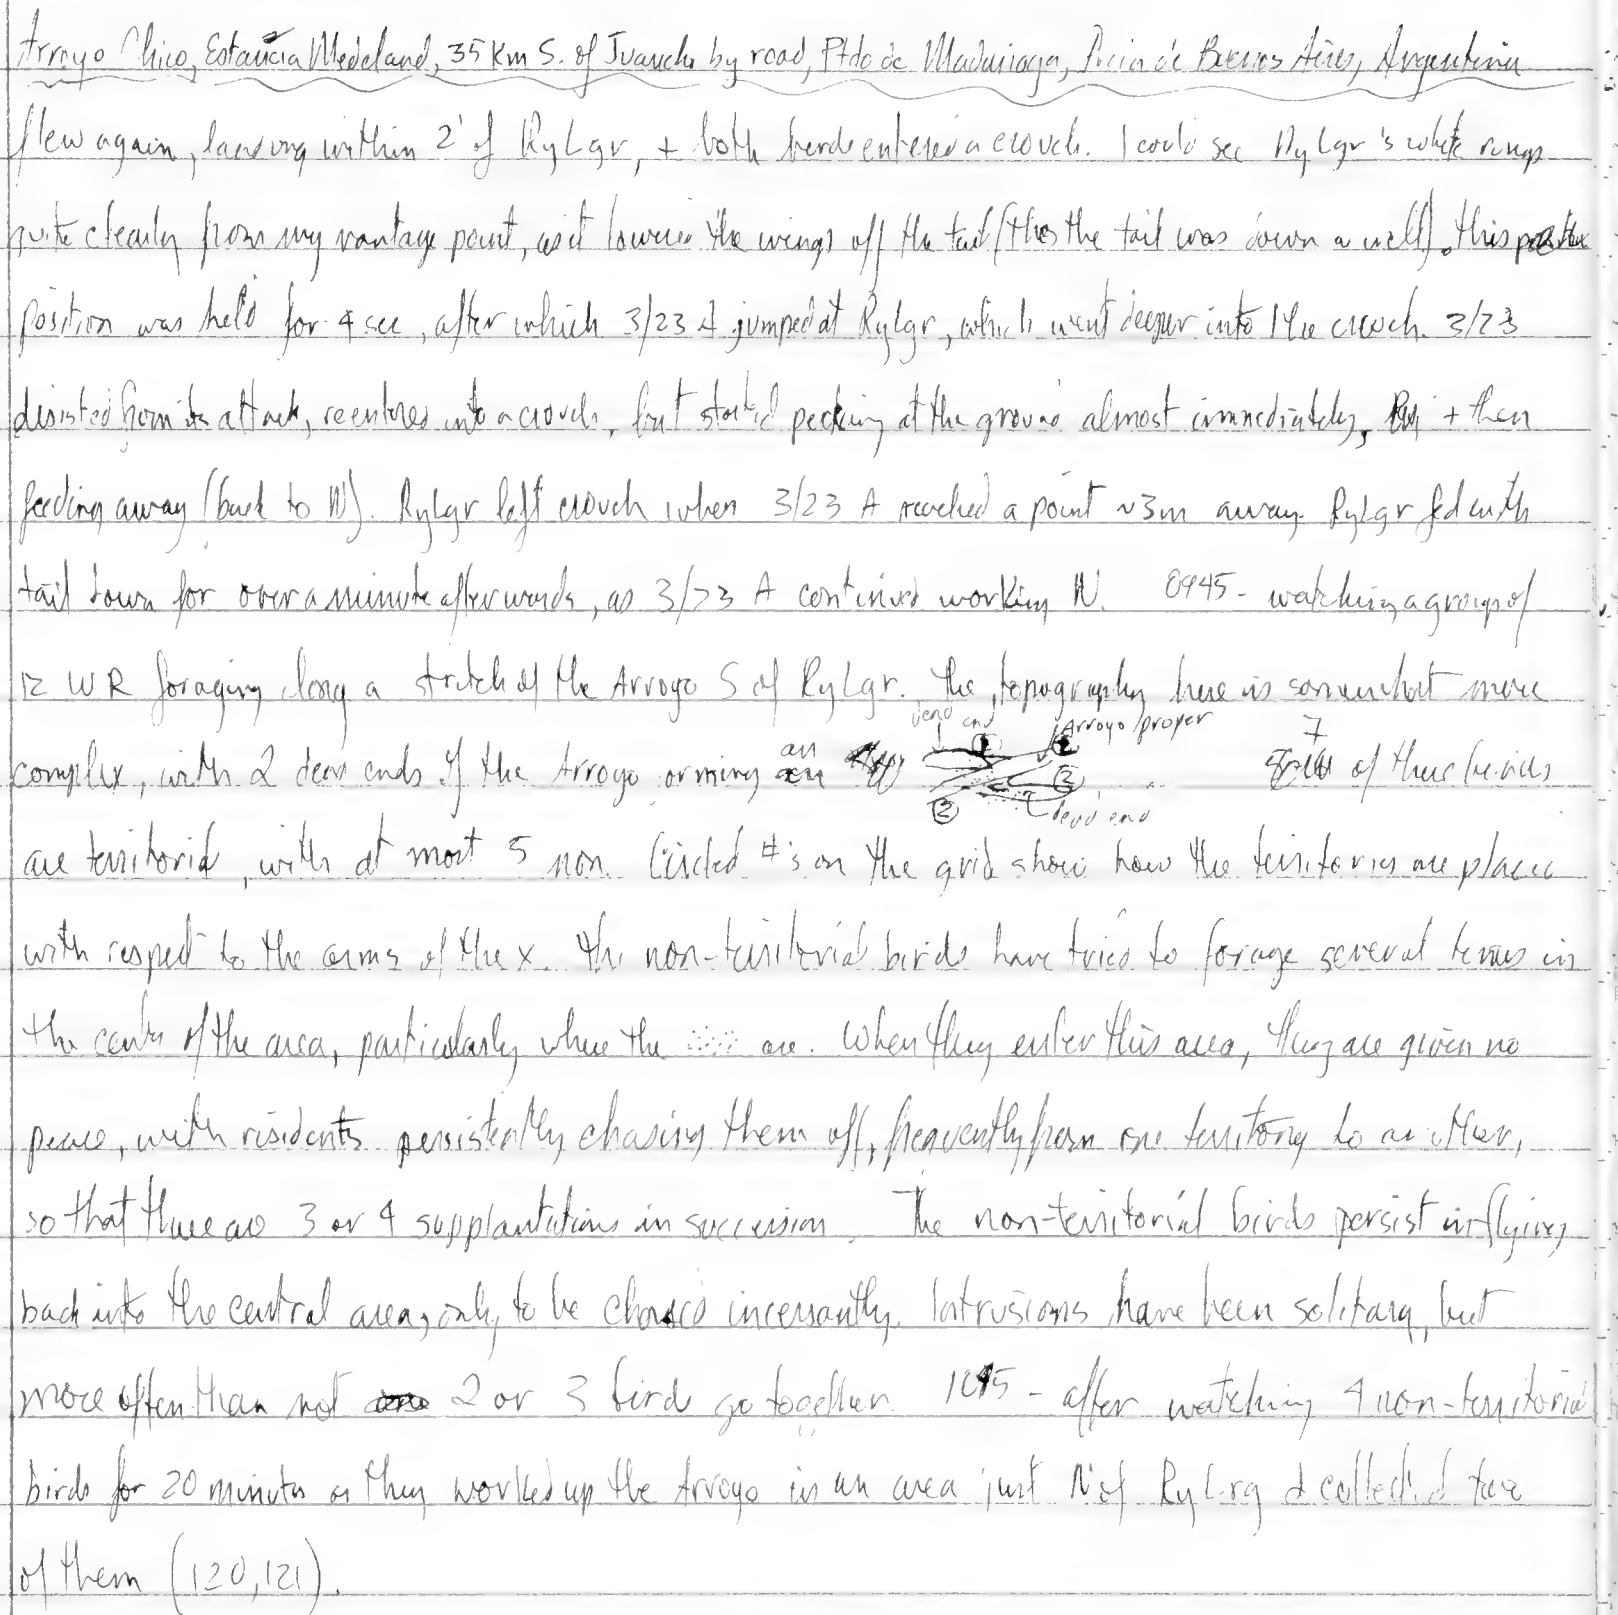 Arroyo Chico, Estancia Medeland, 35 Km S. of Juancho by road, Ptdo de Madariaga, Pcia de Buenos Aires, Argentina
flew again, landing within 2' of RyLgr, + both birds entered a crouch. I could see RyLgr's white rump
quite clearly from my vantage point, as it lowered the wings off the tail (thus the tail was down as well). this
position was held for 4 sec, after which 3/23 A jumped at RyLgr, which went deeper into the crouch. 3/23
desisted from its attack, reentered into a crouch, but started pecking at the ground almost immediately, + then
feeding away (back to N). RyLgr left crouch when 3/23 A reached a point ~3m away. RyLgr fed with
tail down for over a minute afterwards, as 3/23 A continued working N. 0945 - watching a group of
12 WR foraging along a stretch of the Arroyo S of RyLgr. The topography here is somewhat more
dead end Arroyo proper 7
complex, with 2 dead ends of the Arroyo orming an of these birds
2 2 dead end
are territorial, with at most 5 non. Circled #'s on the grid show how the territories are placed
with respect to the arms of the x. The non-territorial birds have tried to forage several times in
the center of the area, particularly where the are. When they enter this area, they are given no
peace, with residents persistently chasing them off, frequently from one territory to another,
so that there are 3 or 4 supplantations in succession. The non-territorial birds persist in flying
back into the central area, only to be chased incessantly. Intrusions have been solitary, but
more often than not 2 or 3 birds go together. - after watching 4 non-territorial
birds for 20 minutes as they worked up the Arroyo in an area just N of RyLrg I collected two
of them (120, 121).